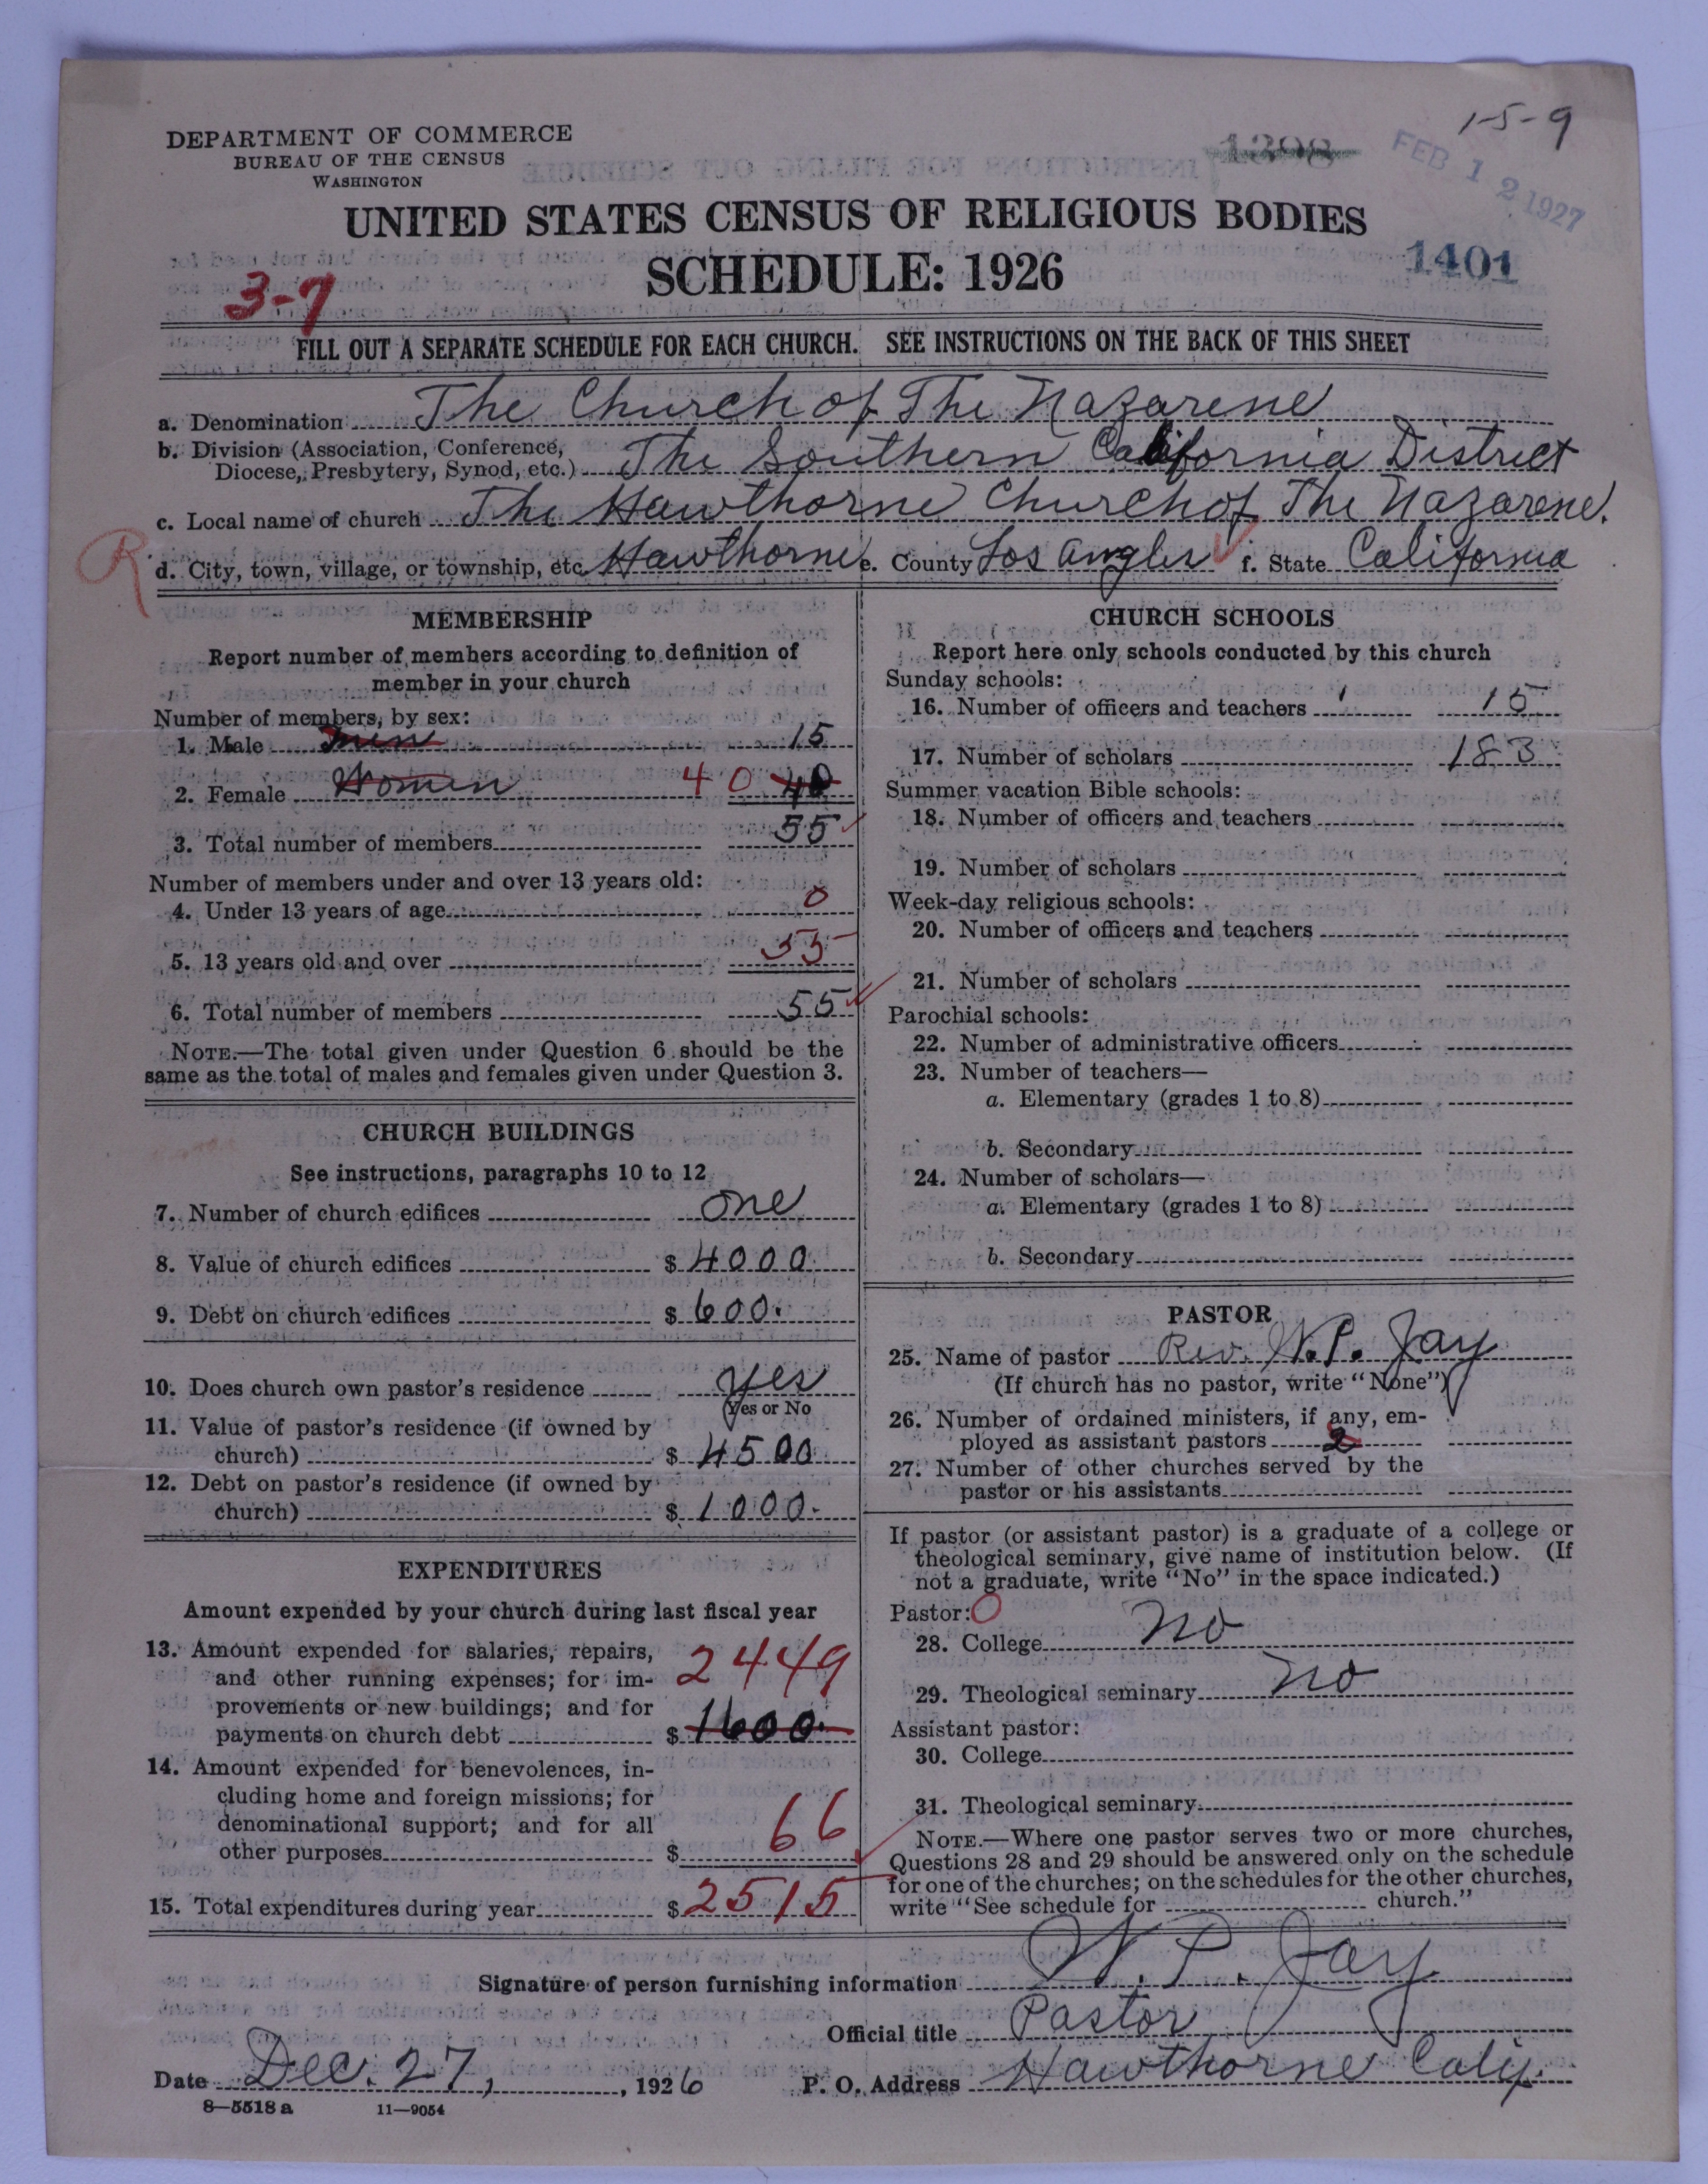 1-5-9
DEPARTMENT OF COMMERCE
BUREAU OF THE CENSUS
WASHINGTON
1298
FEB 12 1927
UNITED STATES CENSUS OF RELIGIOUS BODIES
SCHEDULE: 1926
1401
3-7
FILL OUT A SEPARATE SCHEDULE FOR EACH CHURCH. SEE INSTRUCTIONS ON THE BACK OF THIS SHEET
a. Denomination The Church of The Nazarene
b. Division (Association, Conference,
Diocese, Presbytery, Synod, etc.) The Southern California District
c. Local name of church The Hawthorne Church of The Nazarene.
R
d. City, town, village, or township, etc. Hawthorne e. County Los Angles f. State California
MEMBERSHIP
Report number of members according to definition of
member in your church
Number of members, by sex:
1. Male men 15
2. Female Women 40 40
3. Total number of members 55
Number of members under and over 13 years old:
4. Under 13 years of age 0
5. 13 years old and over 55
6. Total number of members 55
NOTE.—The total given under Question 6 should be the
same as the total of males and females given under Question 3.
CHURCH BUILDINGS
See instructions, paragraphs 10 to 12
7. Number of church edifices one
8. Value of church edifices $ 4000.
9. Debt on church edifices $ 600.
10. Does church own pastor's residence yes
(Yes or No
11. Value of pastor's residence (if owned by
church) $ 4500
12. Debt on pastor's residence (if owned by
church) $ 1000.
EXPENDITURES
Amount expended by your church during last fiscal year
13. Amount expended for salaries, repairs,
and other running expenses; for im- 2449
provements or new buildings; and for
payments on church debt $ 1600.
14. Amount expended for benevolences, in-
cluding home and foreign missions; for
denominational support; and for all 66
other purposes $
15. Total expenditures during year $ 2515
CHURCH SCHOOLS
Report here only schools conducted by this church
Sunday schools:
16. Number of officers and teachers 15
17. Number of scholars 183
Summer vacation Bible schools:
18. Number of officers and teachers
19. Number of scholars
Week-day religious schools:
20. Number of officers and teachers
21. Number of scholars
Parochial schools:
22. Number of administrative officers
23. Number of teachers—
a. Elementary (grades 1 to 8)
b. Secondary
24. Number of scholars—
a. Elementary (grades 1 to 8)
b. Secondary
PASTOR
25. Name of pastor Rev. W.P. Jay
(If church has no pastor, write "None")
26. Number of ordained ministers, if any, em-
ployed as assistant pastors 2
27. Number of other churches served by the
pastor or his assistants
If pastor (or assistant pastor) is a graduate of a college or
theological seminary, give name of institution below. (If
not a graduate, write "No" in the space indicated.)
Pastor: O
28. College No
29. Theological seminary No
Assistant pastor:
30. College
31. Theological seminary
NOTE.—Where one pastor serves two or more churches,
Questions 28 and 29 should be answered only on the schedule
for one of the churches; on the schedules for the other churches,
write "See schedule for church."
Signature of person furnishing information W. P. Jay
Official title Pastor
Date Dec. 27, , 1926 P. O. Address Hawthorne Calif.
8—5518 a 11—9054